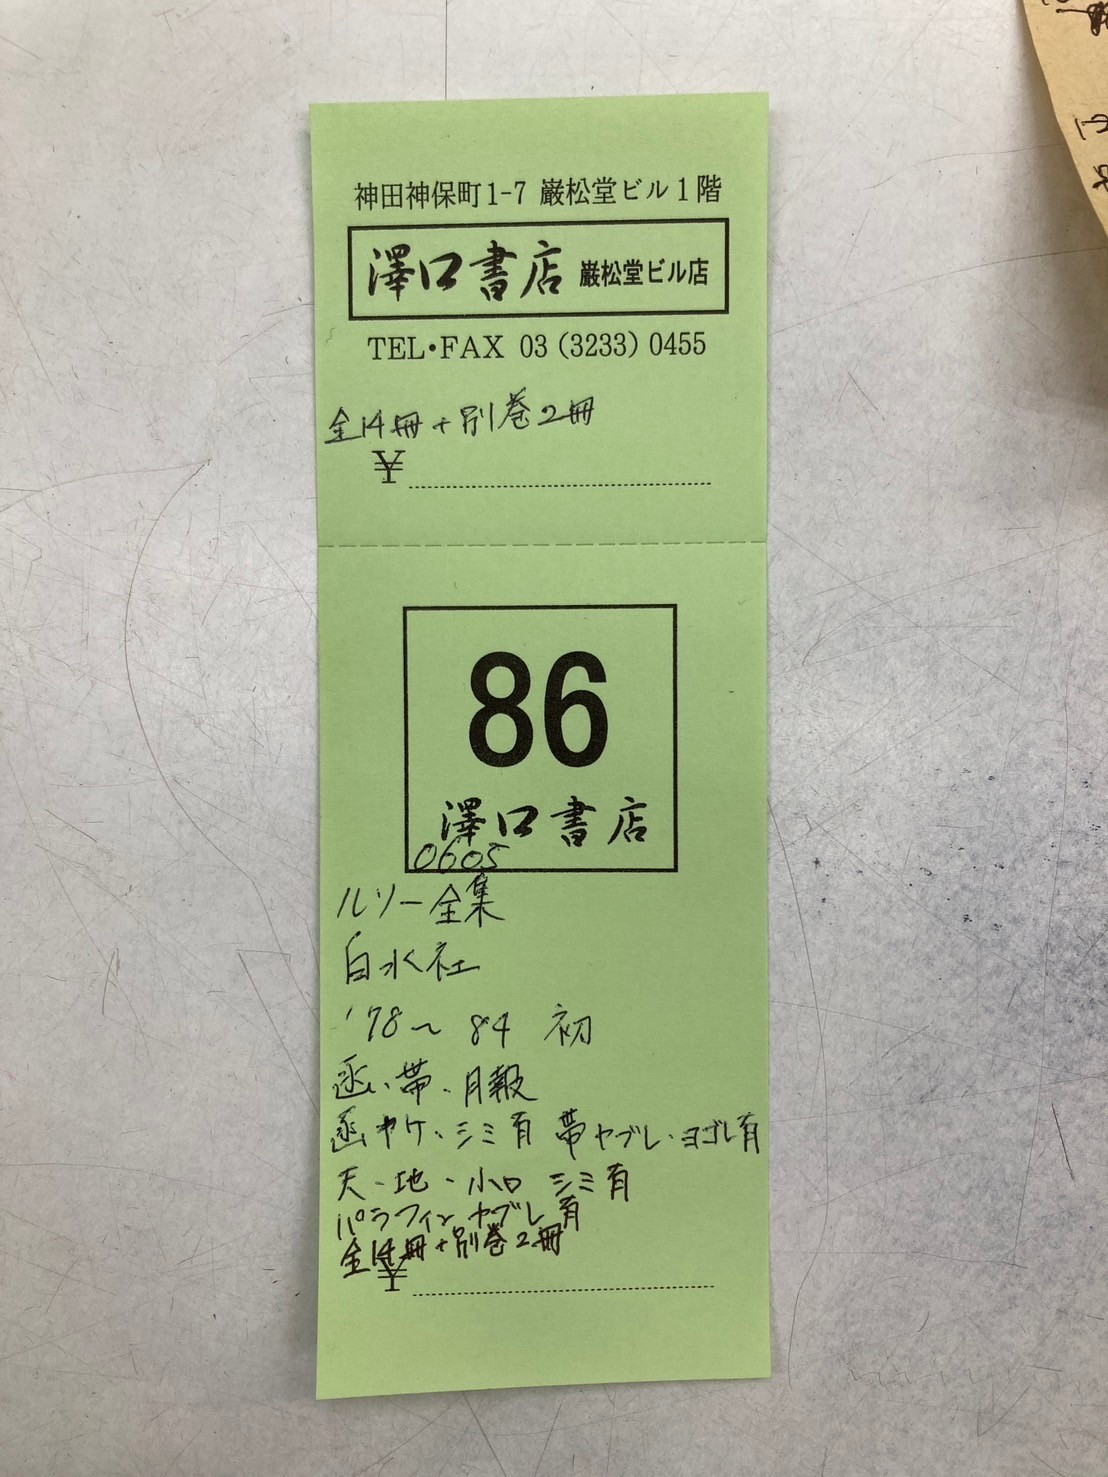 神田神保町1-7 巌松堂ビル1階
澤口書店 巌松堂ビル店
TEL・FAX 03(3233)0455
全14冊+別巻2冊
¥
86
澤口書店
0605
ルソー全集
白水社
'78〜84 初
函・帯・月報
函ヤケ・シミ有 帯ヤブレ・ヨゴレ有
天・地・小口 シミ有
パラフィンヤブレ有
全14冊+別巻2冊
¥